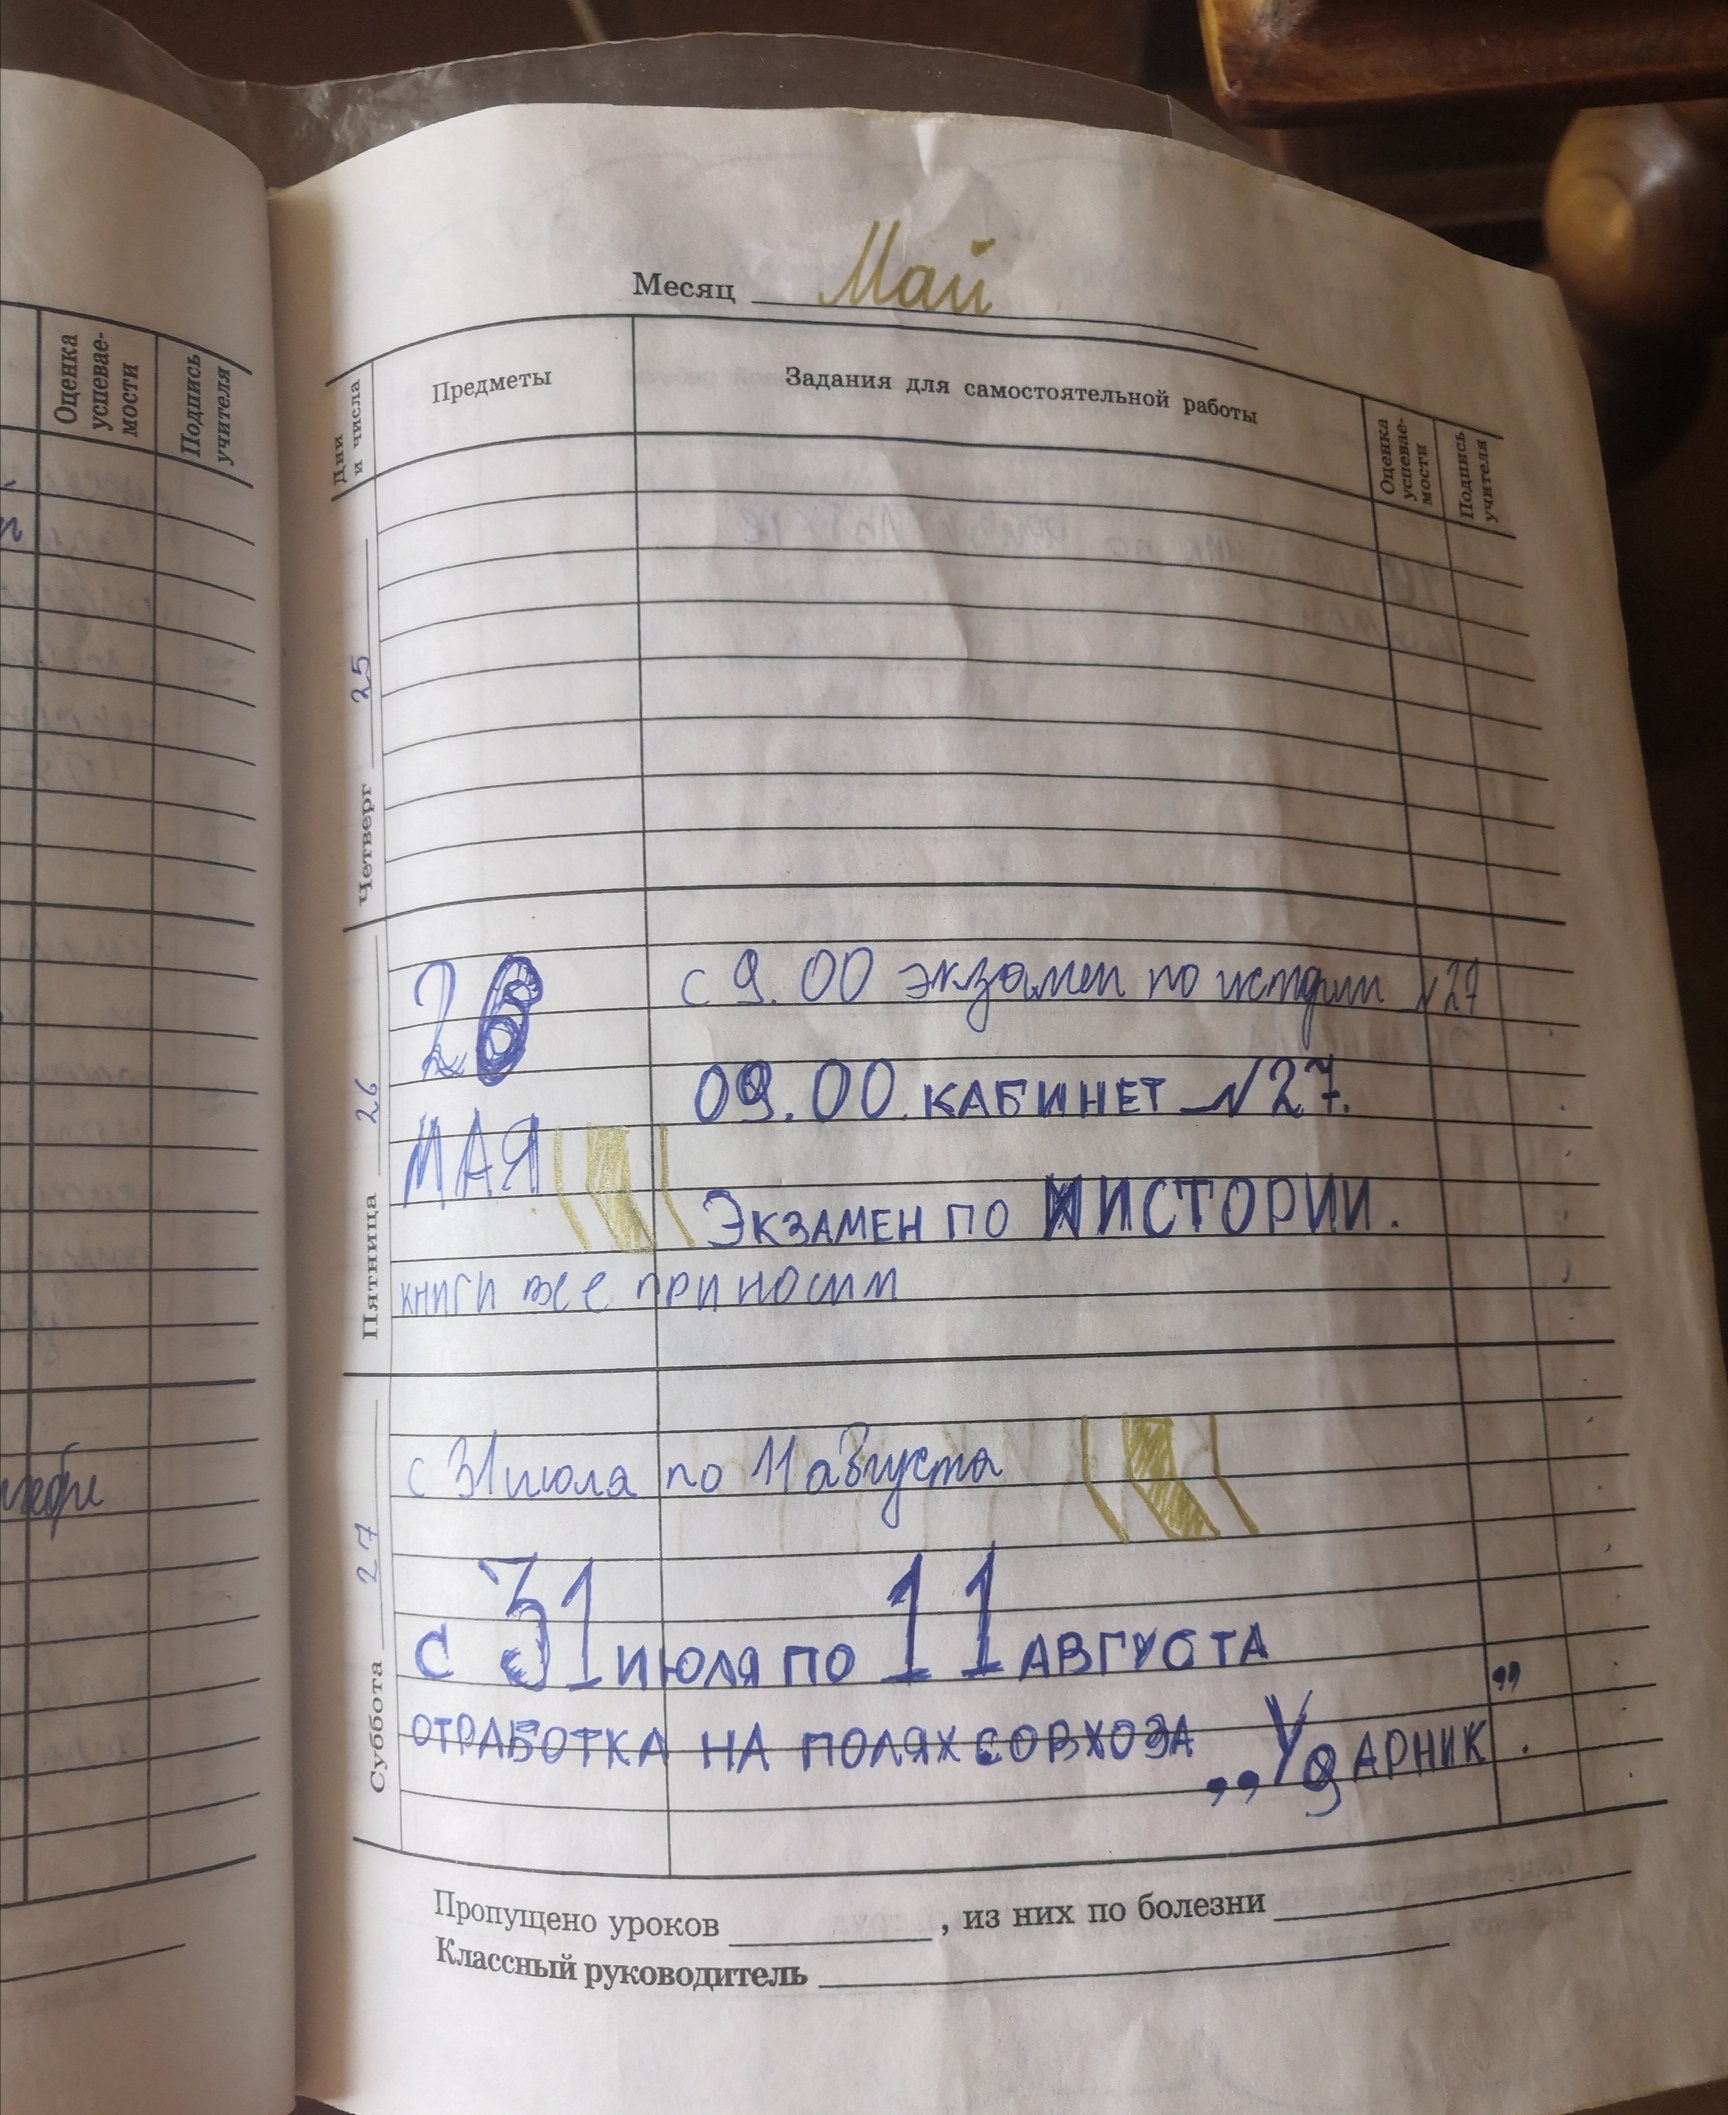 Оценка успевае-мости
Подпись учителя
Месяц Май
Дни и числа
Предметы
Задания для самостоятельной работы
Оценка успевае-мости
Подпись учителя
Четверг 25
Пятница 26
26
с 9.00 экзамен по истории №27
09.00. КАБИНЕТ №27.
МАЯ
ЭКЗАМЕН ПО ИСТОРИИ.
книги все приносим
Суббота 27
с 31 июля по 11 августа
С 31 ИЮЛЯ ПО 11 АВГУСТА
ОТРАБОТКА НА ПОЛЯХ СОВХОЗА „Ударник”.
Пропущено уроков , из них по болезни
Классный руководитель